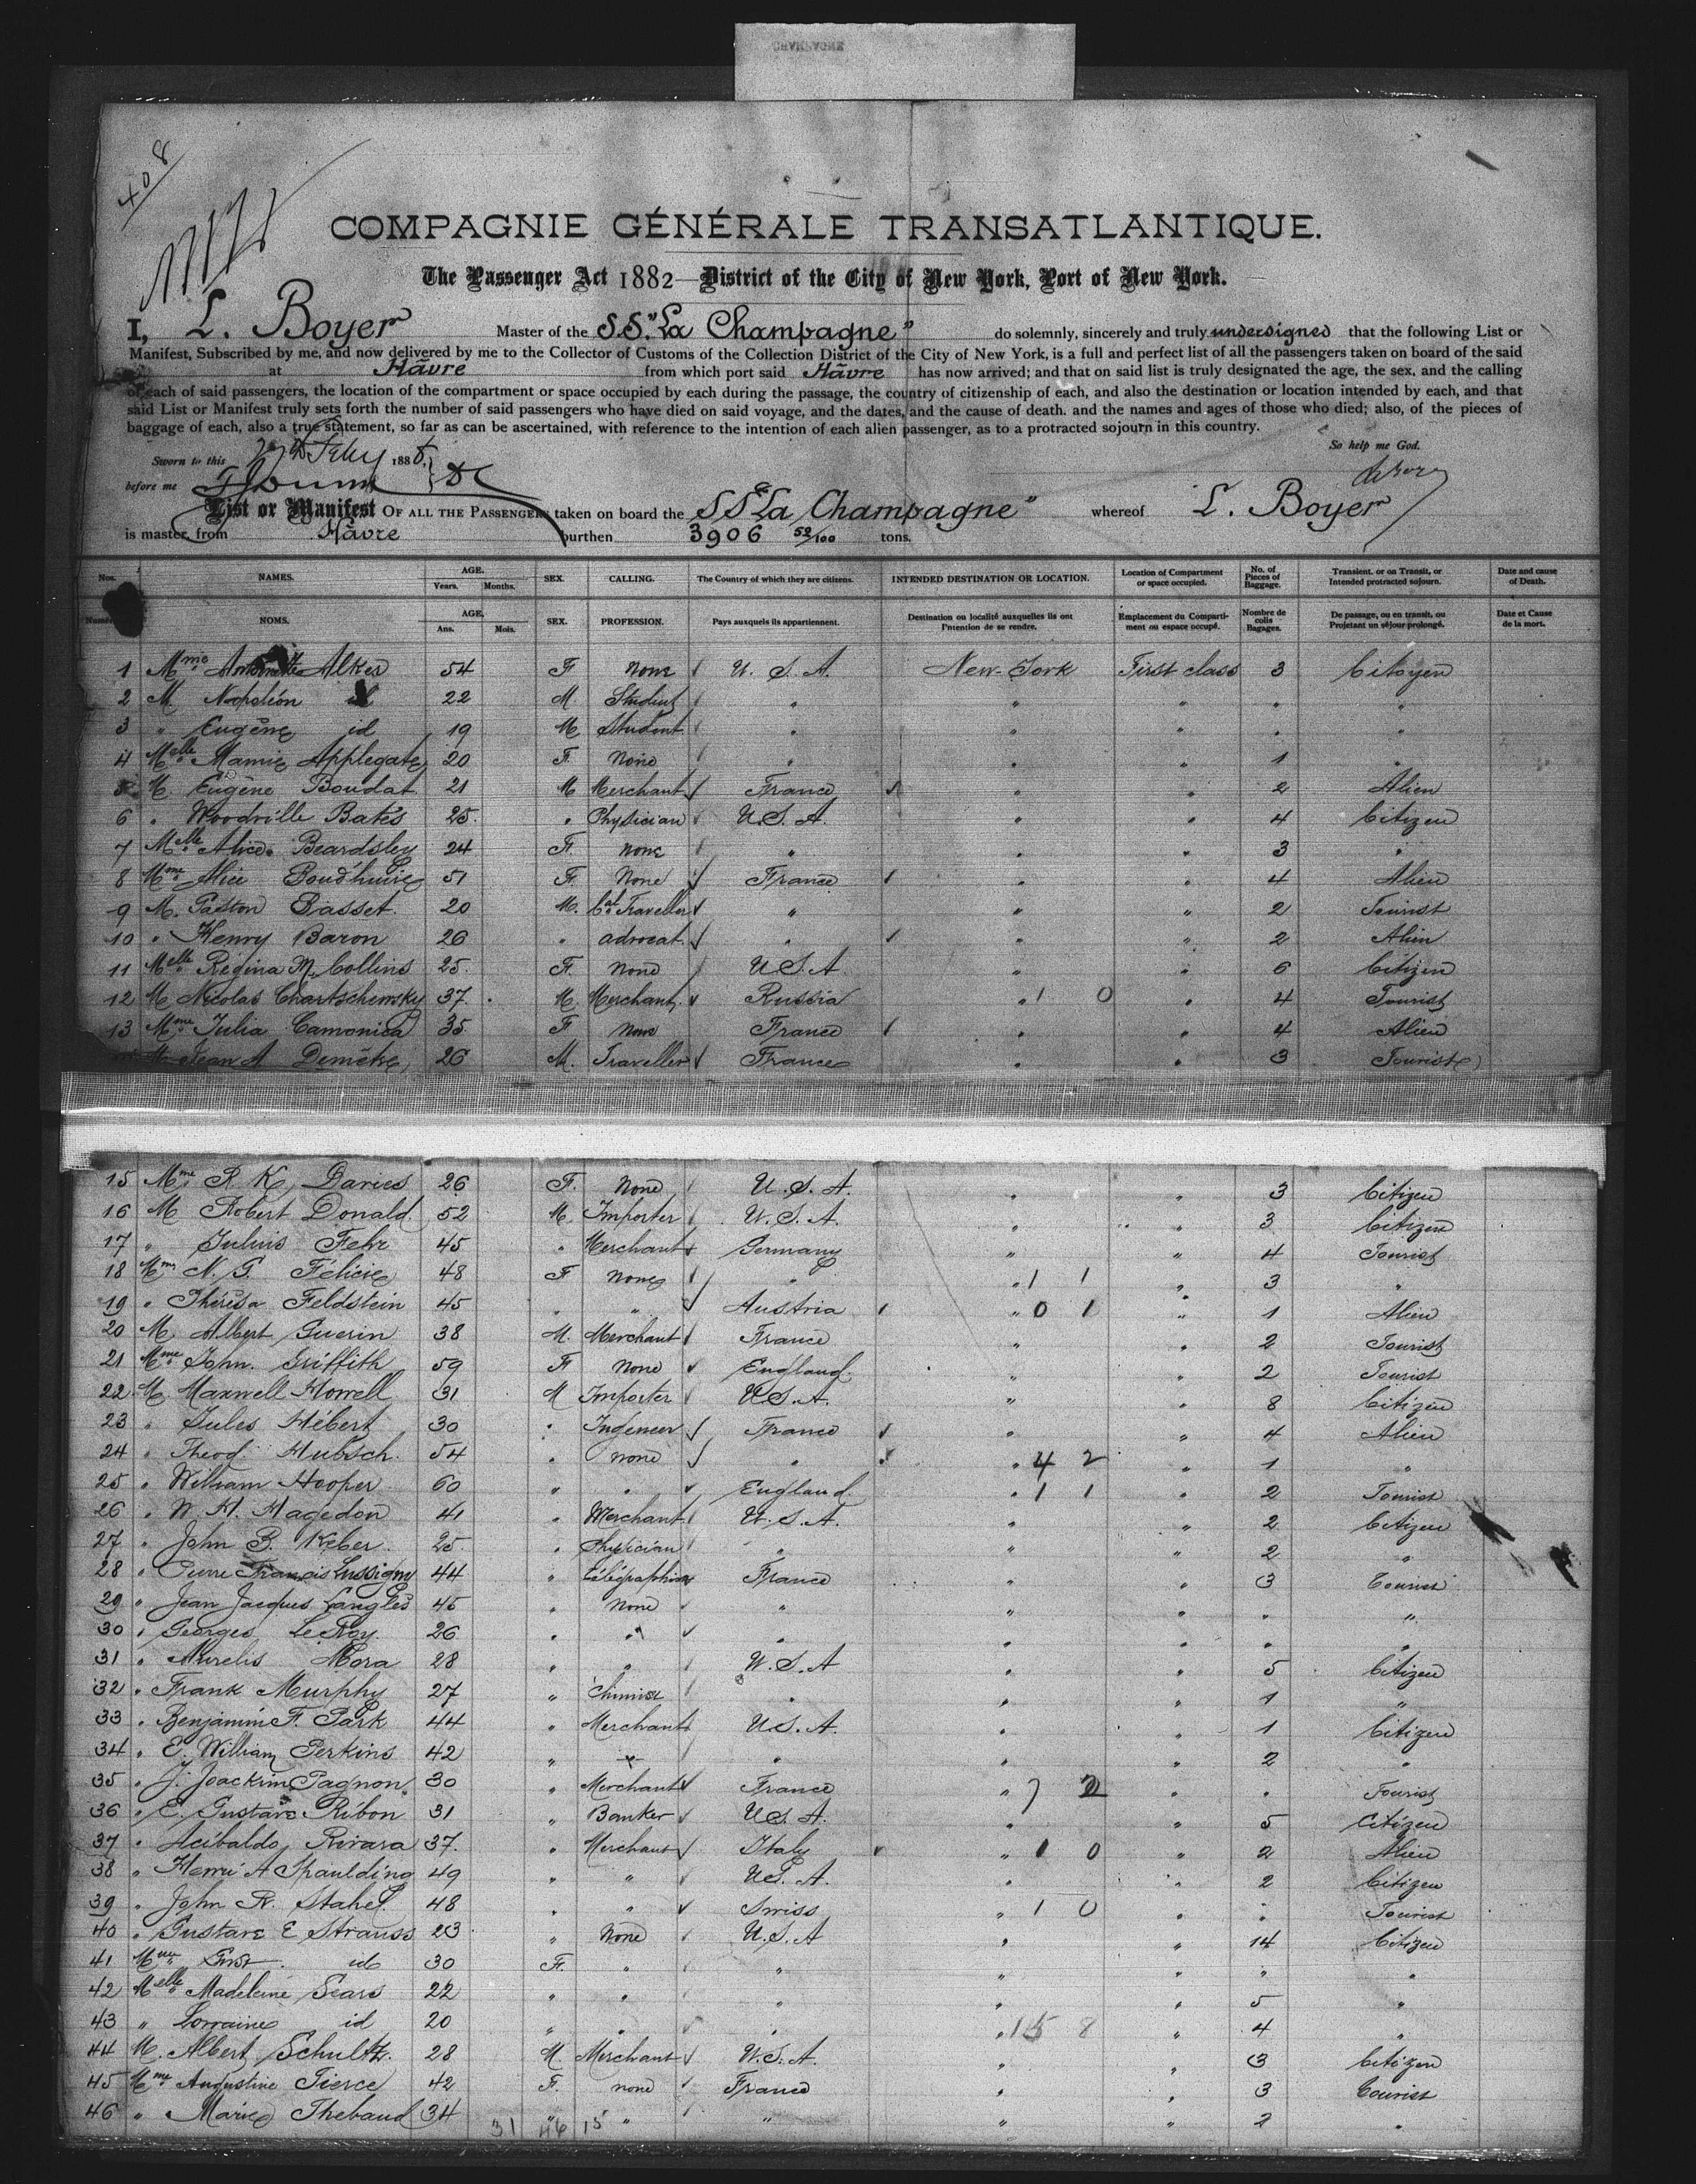 CHAMPAGNE
408
COMPAGNIE GÉNÉRALE TRANSATLANTIQUE.
The Passenger Act 1882—District of the City of New York, Port of New York.
I, L. Boyer Master of the S.S. "La Champagne" do solemnly, sincerely and truly undersigned that the following List or
Manifest, Subscribed by me, and now delivered by me to the Collector of Customs of the Collection District of the City of New York, is a full and perfect list of all the passengers taken on board of the said
at Hâvre from which port said Hâvre has now arrived; and that on said list is truly designated the age, the sex, and the calling
of each of said passengers, the location of the compartment or space occupied by each during the passage, the country of citizenship of each, and also the destination or location intended by each, and that
said List or Manifest truly sets forth the number of said passengers who have died on said voyage, and the dates, and the cause of death. and the names and ages of those who died; also, of the pieces of
baggage of each, also a true statement, so far as can be ascertained, with reference to the intention of each alien passenger, as to a protracted sojourn in this country.
So help me God.
Sworn to this Feby 188
before me
List or Manifest OF ALL THE PASSENGERS taken on board the SS "La Champagne" whereof L. Boyer
is master, from Hâvre burthen 3906 52/100 tons.
Nos. NAMES. AGE. Years. Months. SEX. CALLING. The Country of which they are citizens. INTENDED DESTINATION OR LOCATION. Location of Compartment or space occupied. No. of Pieces of Baggage. Transient. or on Transit, or Intended protracted sojourn. Date and cause of Death.
NOMS. AGE. Ans. Mois. SEX. PROFESSION. Pays auxquels ils appartiennent. Destination ou localité auxquelles ils ont l'intention de se rendre. Emplacement du Compartiment ou espace occupé. Nombre de colis Bagages. De passage, ou en transit, ou Projetant un séjour prolongé. Date et Cause de la mort.
1 Mme Antoinette Alker 54 F none U. S. A. New-York First class 3 Citoyen
2 M. Napoléon id 22 M. Student " " " " "
3 " Eugène id 19 M Student " " " " "
4 Melle Mamie Applegate 20 F. None " " " 1 "
5 M. Eugène Boudat 21 M Merchant France " " 2 Alien
6 " Woodville Bates 25. " Physician U.S.A. " " 4 Citizen
7 Melle Alice Beardsley 24 F. none " " " 3 "
8 Mme Alice 51 F. None France " " 4 Alien
9 M. Gaston Basset. 20 M. Cal Traveller " " " 2 Tourist
10 " Henry Baron 26 " advocat. " " " 2 Alien
11 Melle Régina M. Collins 25. F. none U.S.A. " " 6 Citizen
12 M. Nicolas Chartschemsky 37. M. Merchant Russia " 1 0 " 4 Tourist
13 Mme Julia Camonica 35 F none France " " 4 Alien
M. Jean A 26 M. Traveller France " " 3 Tourist
15 Mme R K Davies 26 F. None U.S.A. " " 3 Citizen
16 M Robert Donald 52 M. Importer U.S.A. " " 3 Citizen
17 " Julius Fehr 45 " Merchant Germany " " 4 Tourist
18 Mme N. G. Félicie 48 F none " " 1 1 " 3 "
19 " Thérésa Feldstein 45 " " Austria " 0 1 " 1 Alien
20 M. Albert Guerin 38 M. Merchant France " " 2 Tourist
21 Mme John. Griffith 59 F none England " " 2 Tourist
22 M. Maxwell Howell 31 M Importer U.S.A. " " 8 Citizen
23 " Jules Hébert 30 " Ingeneer France " " 4 Alien
24 " Theod. Hubsch. 54 " none " " 4 2 " 1 "
25 " William Hooper 60 " " England " 1 1 " 2 Tourist
26 " W. H. Hagedon 41 " Merchant U.S.A. " " 2 Citizen
27 " John B. Keber. 25. " Physician " " " 2 "
28 " Pierre Francis Lussigny 44 " France " " 3 Tourist
29 " Jean Jacques Langles 45 " none " " " " "
30 " Georges Le Roy. 26 " " " " " " "
31 " Aurelis Mora 28 " " U.S.A " " 5 Citizen
32 " Frank Murphy 27 " Chimist " " " 1 "
33 " Benjamin F. Park 44 " Merchant U.S.A. " " 1 Citizen
34 " E. William Perkins 42 " " " " " 2 "
35 " J. Joackim Pagnon 30 " Merchant France " 7 2 " " Tourist
36 " E. Gustave Ribon 31 " Banker U.S.A. " " 5 Citizen
37 " Acibaldo Rivara 37. " Merchant Italy " 1 0 " 2 Alien
38 " Henri A Spaulding 49 " " U.S.A. " " 2 Citizen
39 " John R. Stahel 48 " " Swiss " 1 0 " " Tourist
40 " Gustave E Strauss 23 " None U.S.A " " 14 Citizen
41 Mme id 30 F. " " " " " "
42 Melle Madeleine Sears 22 " " " " " 5 "
43 " Lorraine id 20 " " " " 15 8 " 4 "
44 M. Albert Schultz. 28 M. Merchant U.S.A. " " 3 Citizen
45 Mme Augustine Tierce 42 F. none France " " 3 Tourist
46 " Marie Thebaud 34 " " " " " 2 "
31 46 15